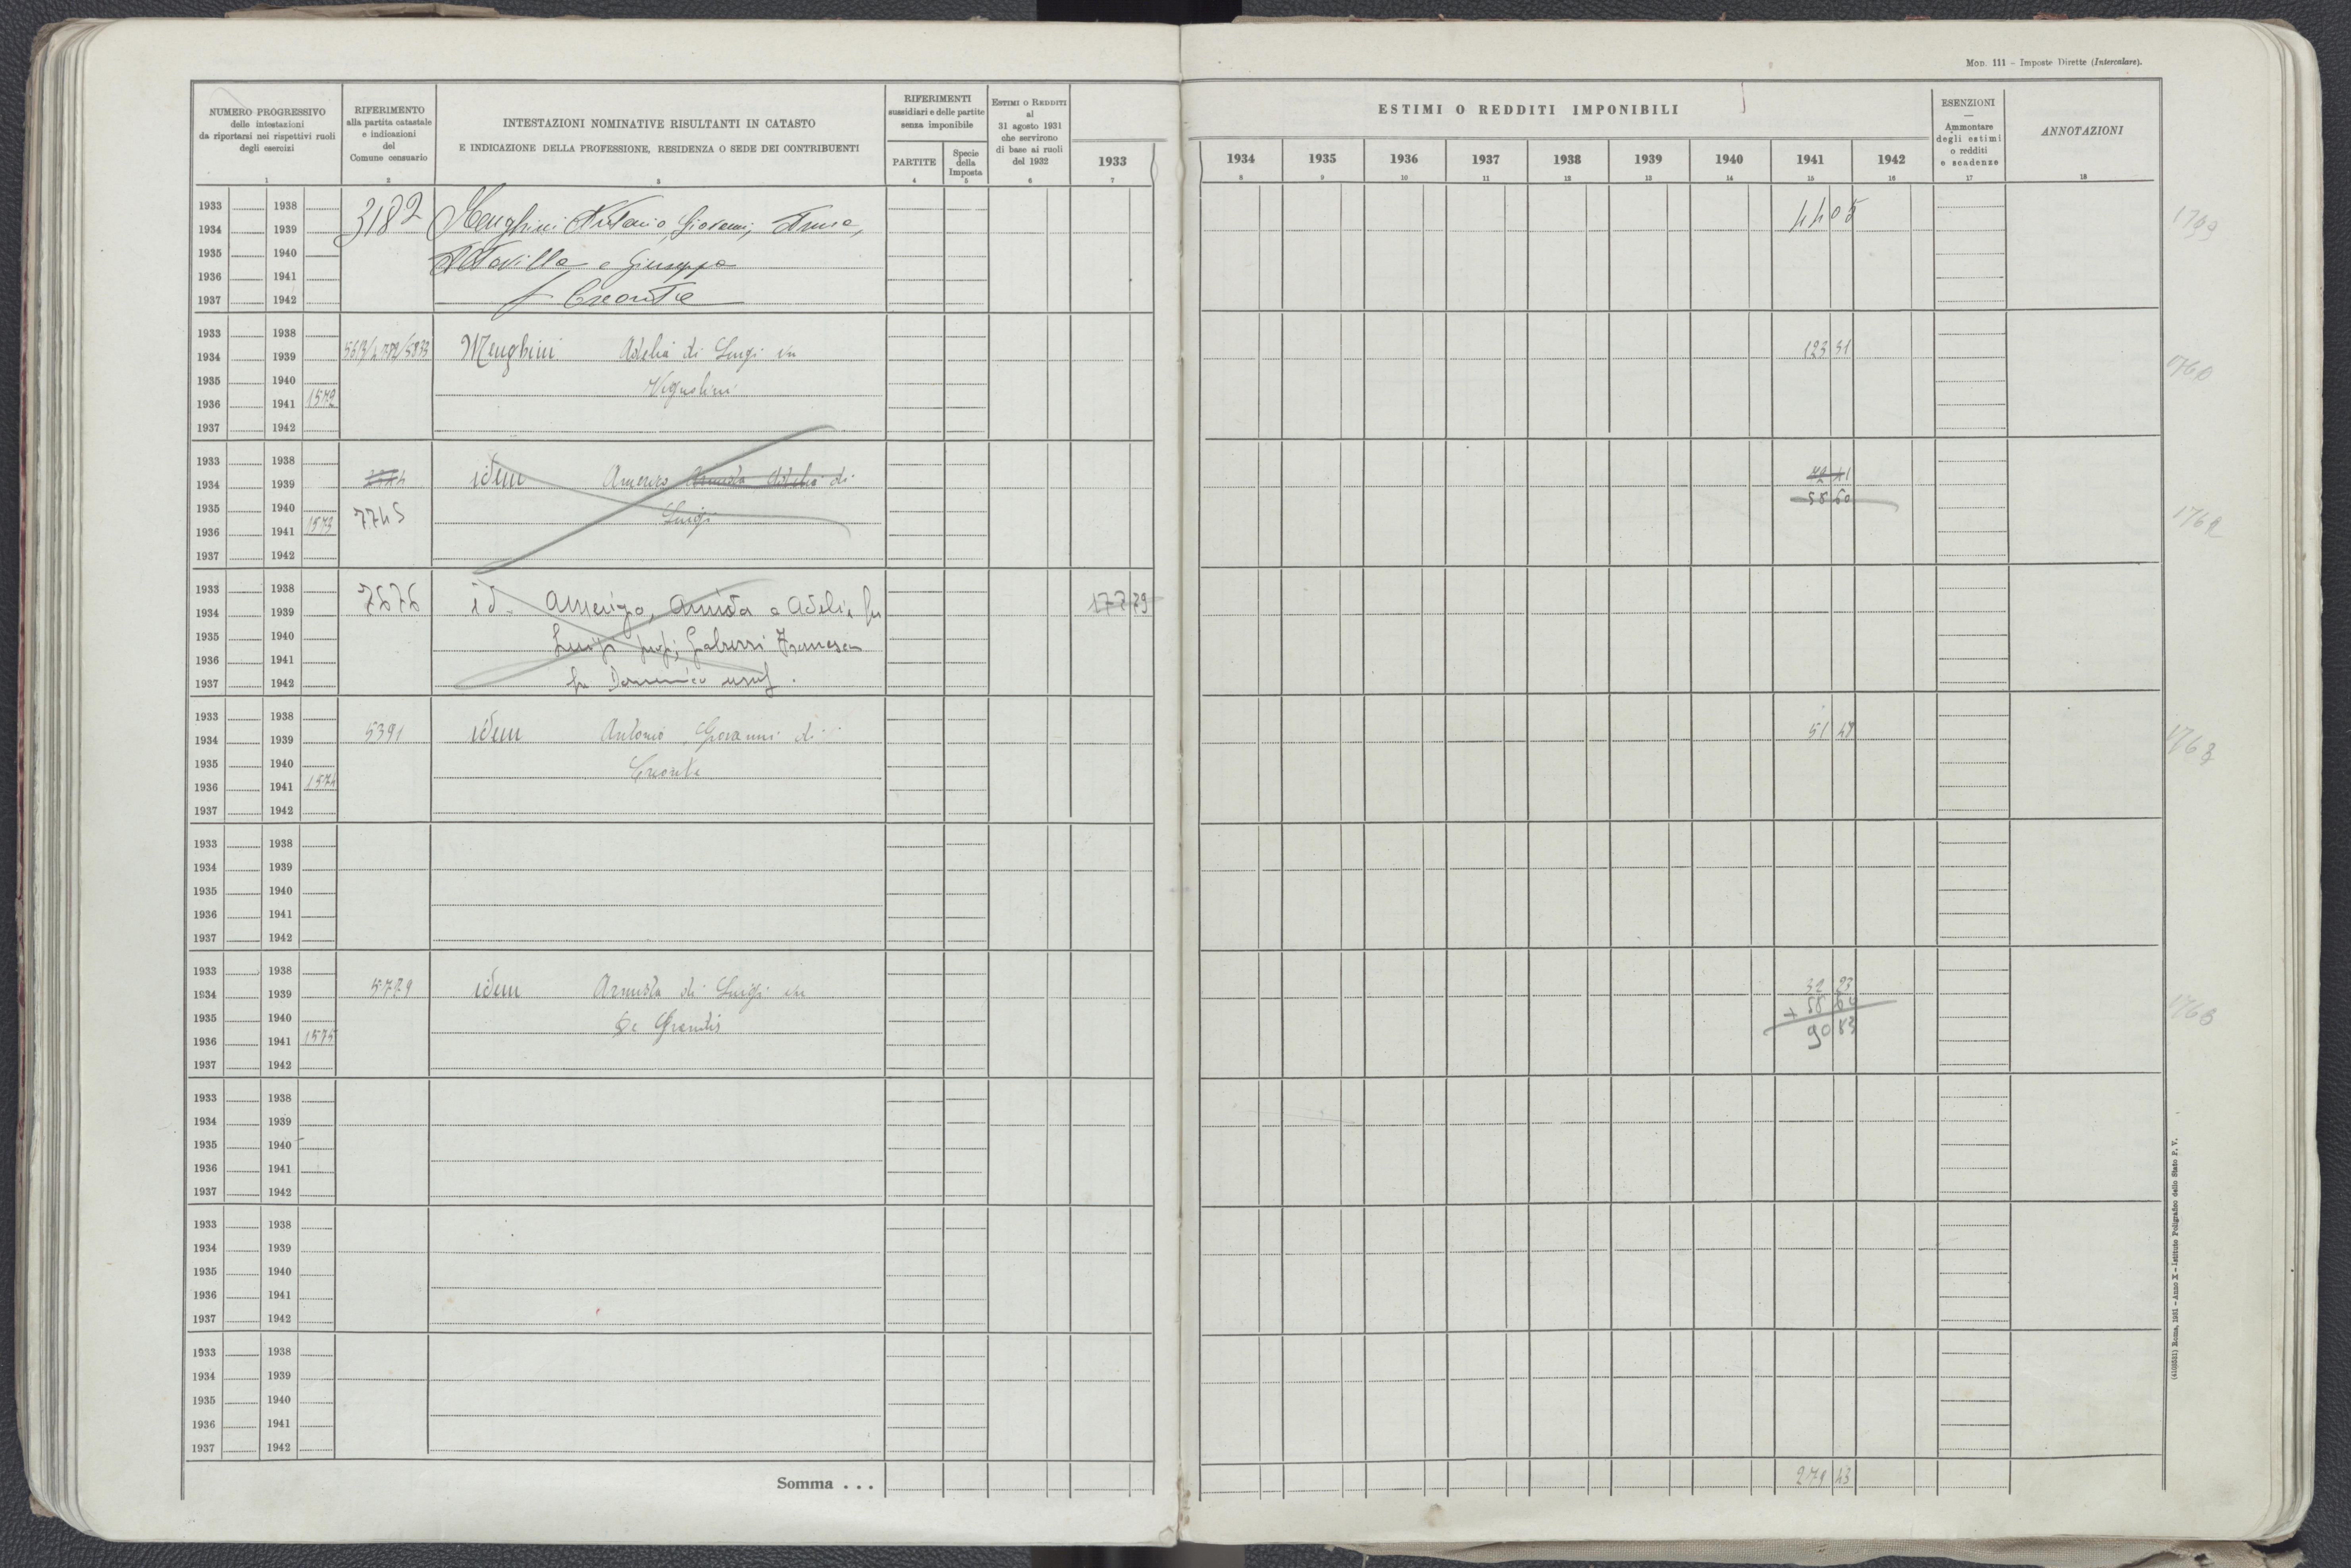 MOD. 111 – Imposte Dirette (Intercalare).
NUMERO PROGRESSIVO
delle intestazioni
da riportarsi nei rispettivi ruoli
degli esercizi
1
RIFERIMENTO
alla partita catastale
e indicazioni
del
Comune censuario
2
INTESTAZIONI NOMINATIVE RISULTANTI IN CATASTO
E INDICAZIONE DELLA PROFESSIONE, RESIDENZA O SEDE DEI CONTRIBUENTI
3
RIFERIMENTI
sussidiari e delle partite
senza imponibile
PARTITE
4
Specie
della
Imposta
5
ESTIMI O REDDITI
al
31 agosto 1931
che servirono
di base ai ruoli
del 1932
6
1933
7
ESTIMI O REDDITI IMPONIBILI
1934 1935 1936 1937 1938 1939 1940 1941 1942
8 9 10 11 12 13 14 15 16
ESENZIONI
—
Ammontare
degli estimi
o redditi
e scadenze
17
ANNOTAZIONI
18
1933 1938 3182 Menghini Antonio, Giovanni, Anna, 44 05
1934 1939
1935 1940 Ottavilla e Giuseppe
1936 1941
1937 1942 f Creonte
1933 1938
1934 1939 Menghini Adelia di Luigi in 123 31
1935 1940 Vignolini
1936 1941 1572
1937 1942
1933 1938
1934 1939 idem Amerigo Armida Adelia di 72 41
1935 1940 7745 Luigi 58 60
1936 1941 1573
1937 1942
1762
1933 1938 7676 id. Amerigo, Armida e Adelia fu 177 79
1934 1939
1935 1940 Luigi prop; Galuzzi Francesca
1936 1941
1937 1942 fu Domenico usuf.
1933 1938
1934 1939 5391 idem Antonio Giovanni di 51 48
1935 1940 Creonte
1936 1941 1574
1937 1942
1933 1938
1934 1939
1935 1940
1936 1941
1937 1942
1933 1938
1934 1939 5729 idem Armida di Luigi in 32 23
1935 1940 De Grandis + 58 60
1936 1941 1575 90 83
1937 1942
1933 1938
1934 1939
1935 1940
1936 1941
1937 1942
1933 1938
1934 1939
1935 1940
1936 1941
1937 1942
1933 1938
1934 1939
1935 1940
1936 1941
1937 1942
Somma . . . 279 43
(4103531) Roma, 1931 – Anno X – Istituto Poligrafico dello Stato P. V.